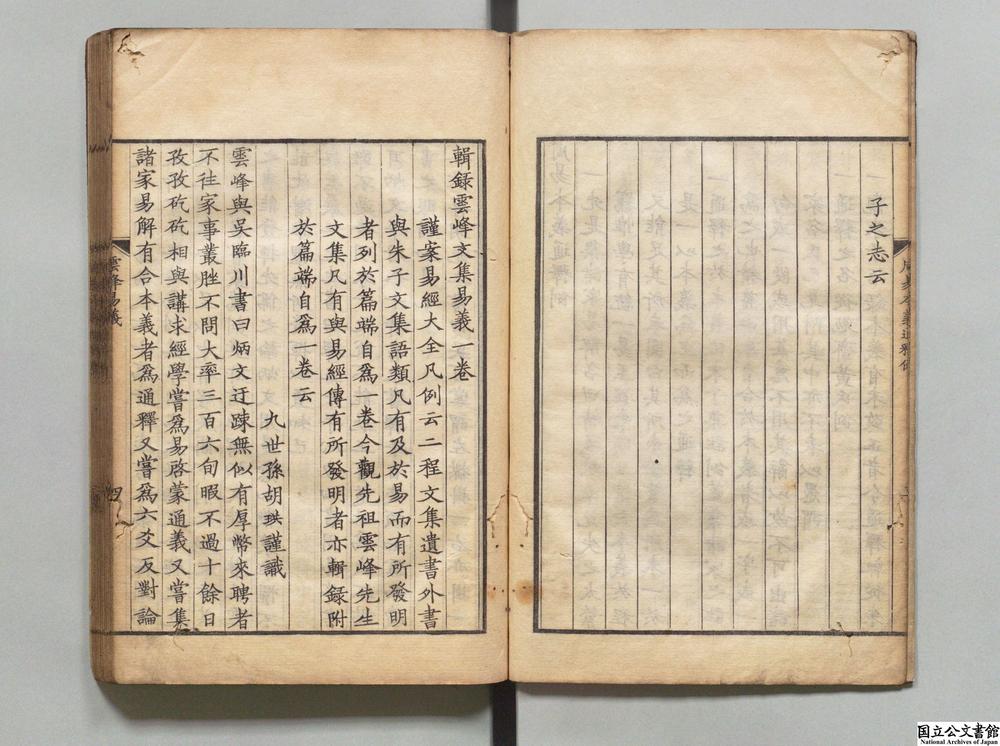 子之志云
輯録雲峰文集易義一卷
謹案易經大全凡例云二程文集遺書外書
與朱子文集語類凡有及於易而有所發明
者列於篇端自爲一卷今觀先祖雲峰先生
文集凡有與易經傳有所發明者亦輯録附
於篇端自爲一卷云
九世孫胡珙謹識
雲峰與吴臨川書曰炳文迂踈無似有厚幣來聘者
不往家事叢脞不問大率三百六旬暇不過十餘日
孜孜矻矻相與講求經學嘗爲易啓蒙通義又嘗集
諸家易解有合本義者爲通釋又嘗爲六爻反對論
雲峰易義
四
国立公文書館
National Archives of Japan